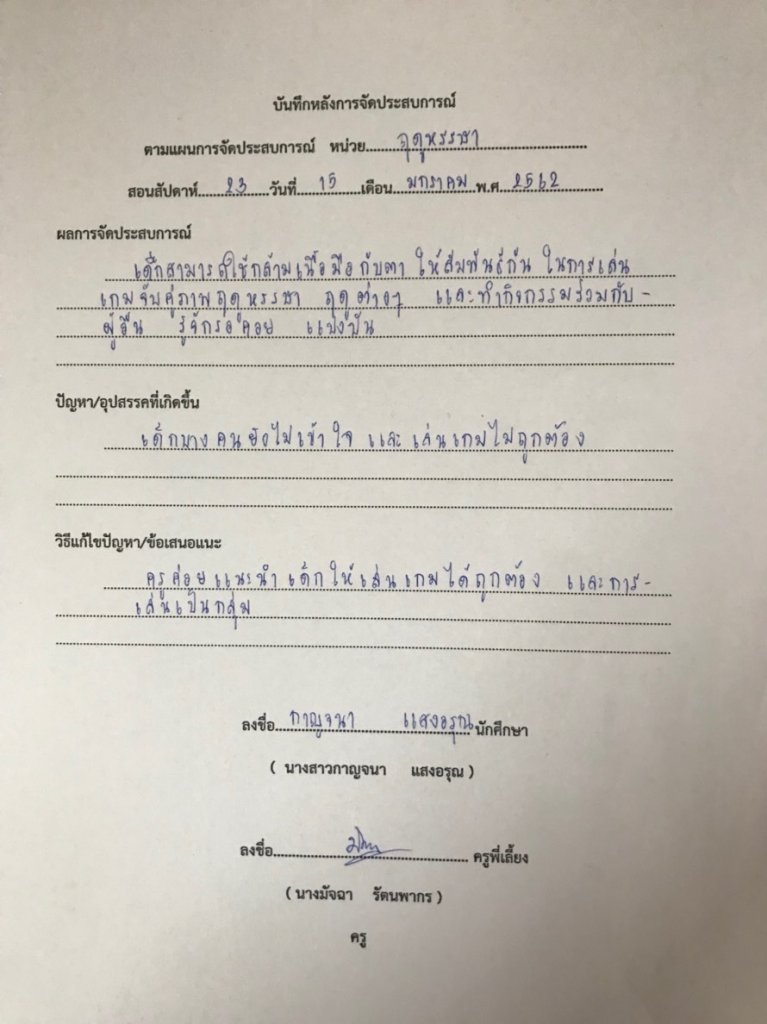 บันทึกหลังการจัดประสบการณ์
ตามแผนการจัดประสบการณ์ หน่วย...ฤดูหรรษา...
สอนสัปดาห์...23...วันที่...15...เดือน...มกราคม...พ.ศ...2562...
ผลการจัดประสบการณ์
เด็กสามารถใช้กล้ามเนื้อมือกับตา ให้สัมพันธ์กัน ในการเล่น
เกมจับคู่ภาพฤดูหรรษา ฤดูต่างๆ และทำกิจกรรมร่วมกับ-
ผู้อื่น รู้จักรอคอย แบ่งปัน
ปัญหา/อุปสรรคที่เกิดขึ้น
เด็กบางคนยังไม่เข้าใจ และ เล่นเกมไม่ถูกต้อง
วิธีแก้ไขปัญหา/ข้อเสนอแนะ
ครูค่อยแนะนำเด็กให้เล่นเกมได้ถูกต้อง และการ-
เล่นเป็นกลุ่ม
ลงชื่อ...กาญจนา แสงอรุณ...นักศึกษา
( นางสาวกาญจนา แสงอรุณ )
ลงชื่อ...ครูพี่เลี้ยง
( นางมัจฉา รัตนพากร )
ครู